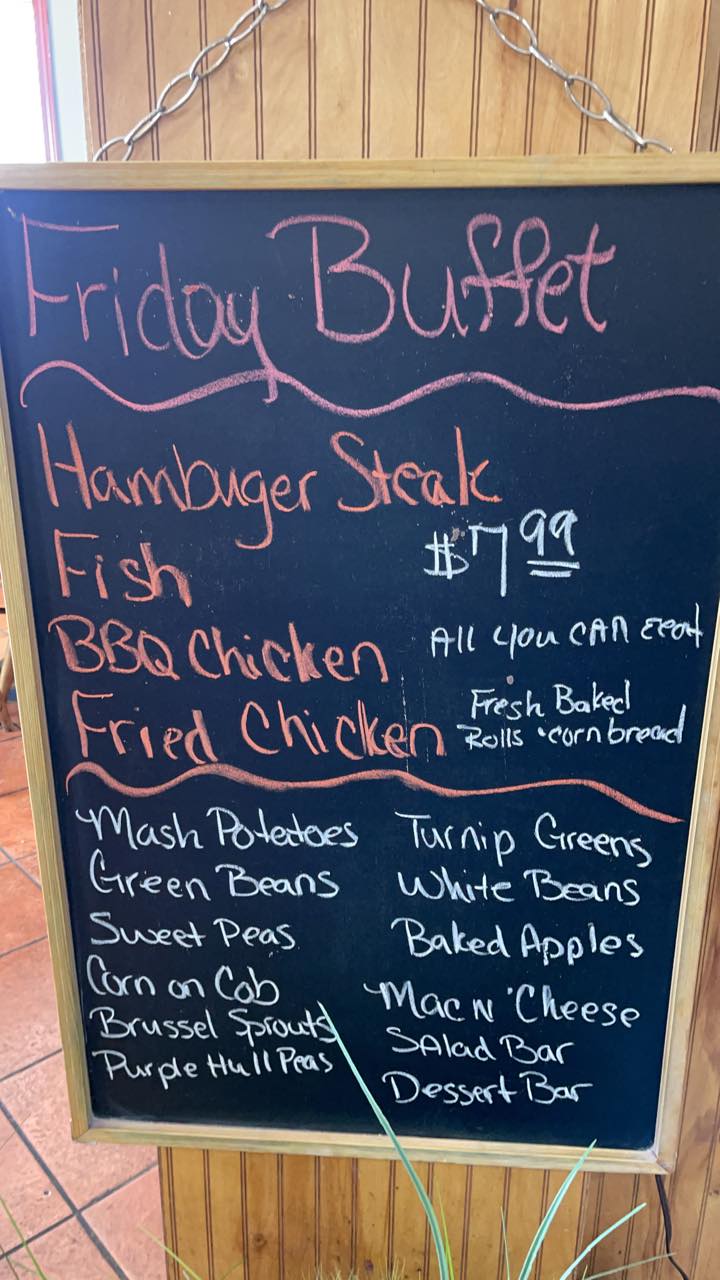 Friday Buffet
Hambuger Steak
Fish
$7.99
BBQ Chicken
All you CAN eat
Fried Chicken
Fresh Baked
Rolls • cornbread
Mash Potatoes
Green Beans
Sweet Peas
Corn on Cob
Brussel Sprouts
Purple Hull Peas
Turnip Greens
White Beans
Baked Apples
Mac N 'Cheese
SAlad Bar
Dessert Bar